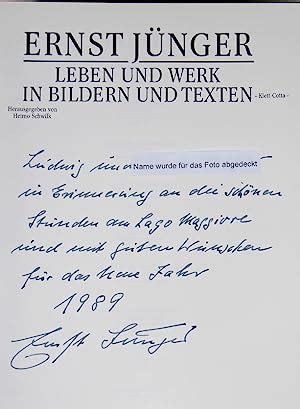 ERNST JÜNGER
LEBEN UND WERK
IN BILDERN UND TEXTEN - Klett Cotta -
Herausgegeben von
Heimo Schwilk
Ludwig und Name wurde für das Foto abgedeckt
in Erinnerung an die schönen
Stunden am Lago Maggiore
und mit guten Wünschen
für das Neue Jahr
1989
Ernst Jünger